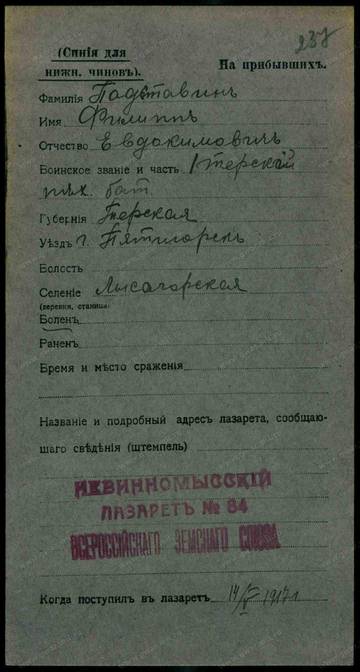 237
(Синія для
нижн. чиновъ).
На прибывшихъ.
Фамилія Подставинъ
Имя Филиппъ
Отчество Евдокимовичъ
Воинское званіе и часть 1 терскій
пѣх. бат.
Губернія Терская
Уѣздъ г. Пятигорскъ
Волость
Селеніе Лысогорская
(деревня, станица)
Боленъ
Раненъ
Время и мѣсто сраженія
Названіе и подробный адресъ лазарета, сообщаю-
щаго свѣдѣнія (штемпель)
НЕВИННОМЫССКІЙ
ЛАЗАРЕТЪ № 84
ВСЕРОССІЙСКАГО ЗЕМСКАГО СОЮЗА
Когда поступилъ въ лазаретъ 14/V 1917 г.